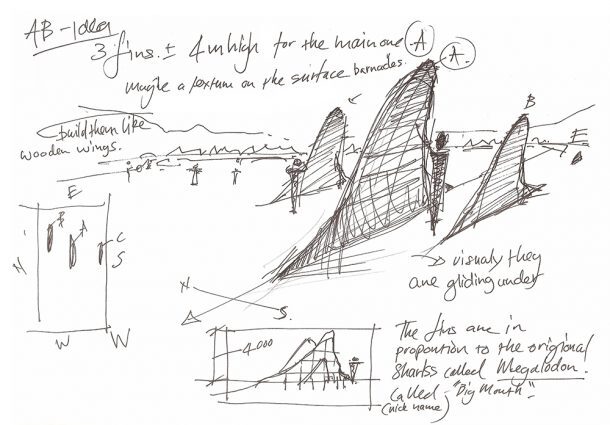 AB-Idea
3 fins. ± 4m high for the main one A
maybe a textum on the surface barnacles.
A.
build them like
wooden wings.
B
E
E
B
A
N
C
S
W
W
N
S.
→ visualy they
are gliding under
4.000
The fins are in
proportion to the origional
Sharks called Megalodon.
Called - "Big Mouth"
(nick name)